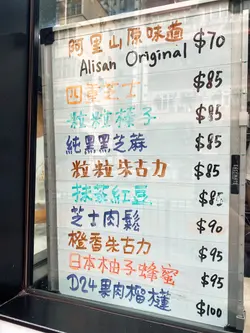 阿里山原味菌 $70
Alisan Original
四重芝士 $85
粒粒榛子 $85
純黑黑芝蔴 $85
粒粒朱古力 $85
抹茶紅豆 $85
芝士肉鬆 $90
橙香朱古力 $95
日本柚子蜂蜜 $95
D24果肉榴槤 $100